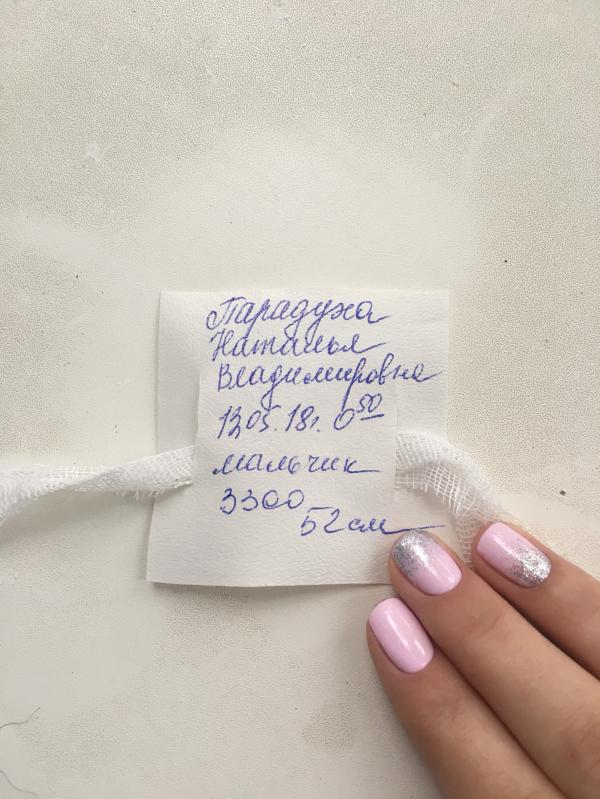 Парадуха
Наталья
Владимировна
13.05.18г. 0 50
мальчик
3300
52 см